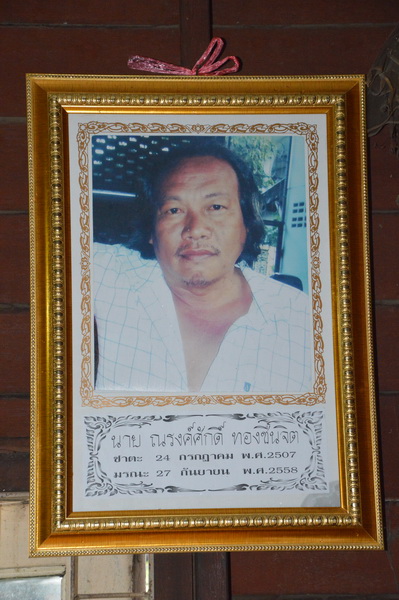 นาย ณรงค์ศักดิ์ ทองขึ้นจิต
ชาตะ 24 กรกฎาคม พ.ศ.2507
มรณะ 27 กันยายน พ.ศ.2558